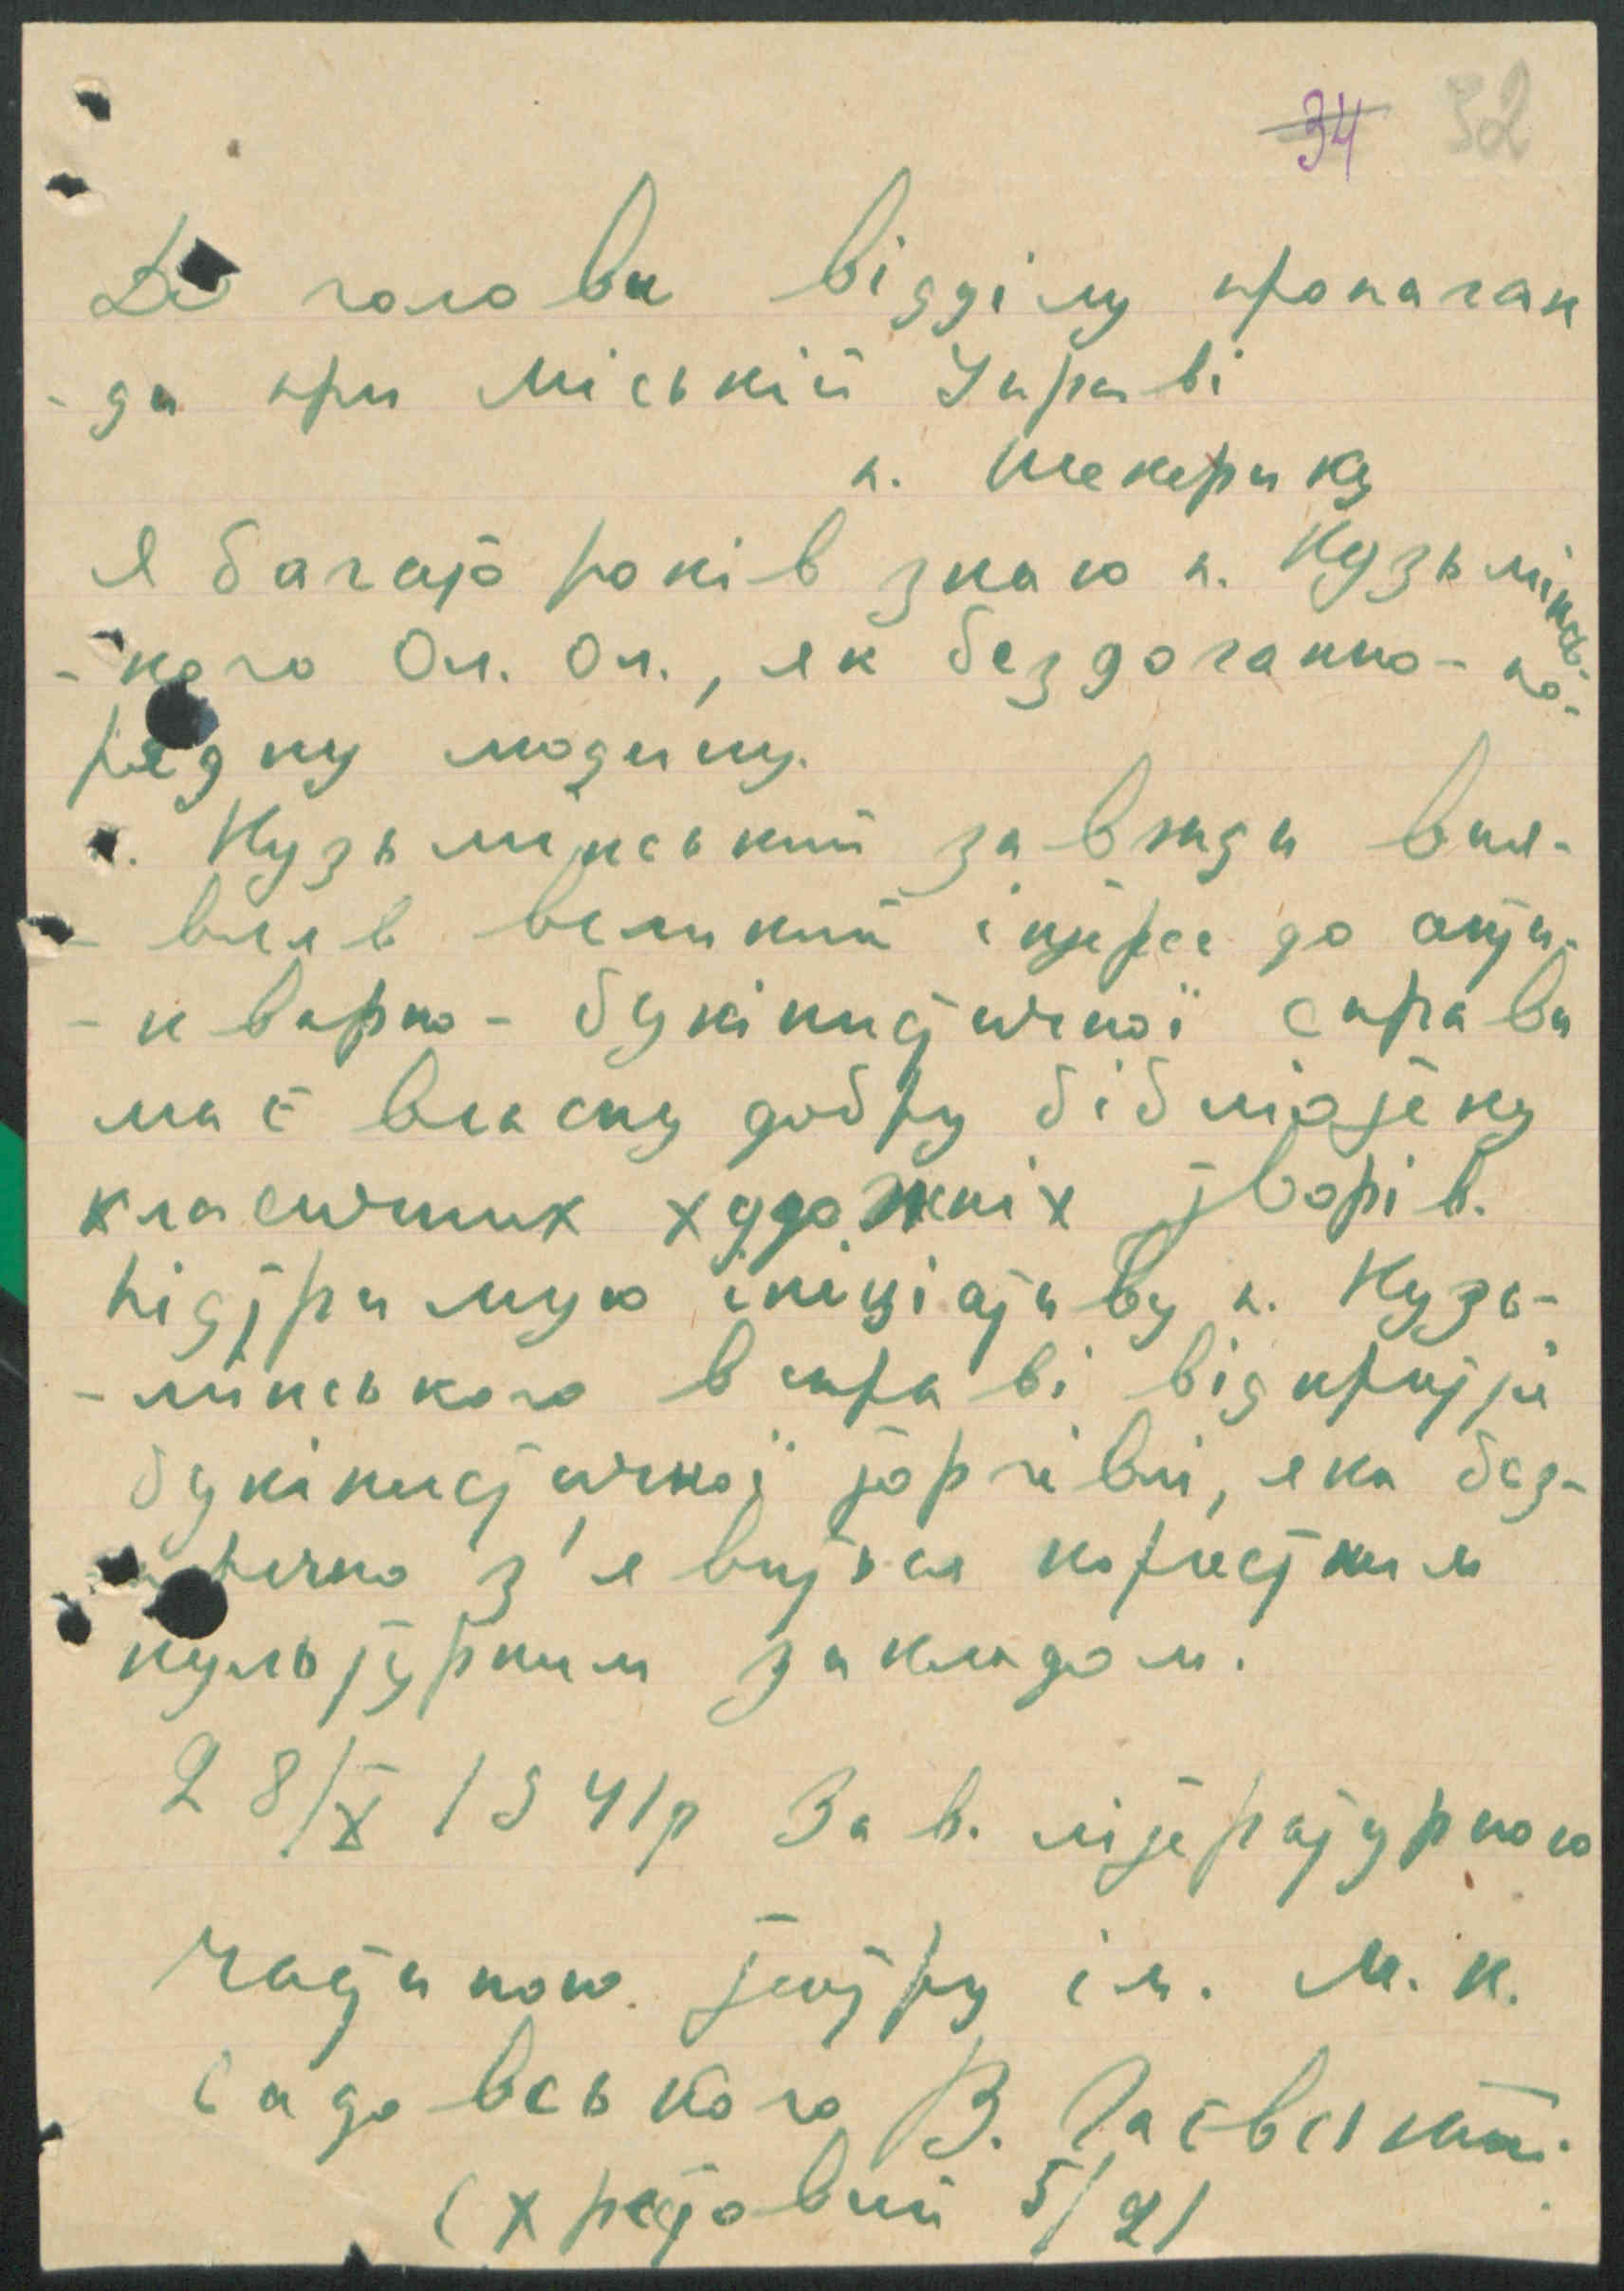 34 32
До голови відділу пропаган
- ди при Міській Управі
п. Шекерику
Я багато років знаю п. Кузьмінсь-
- кого Ол. Ол., як бездоганно - по-
рядну людину.
п. Кузьмінський завжди вия-
- вляв великий інтерес до анти-
- кварно - букіністичної справи
має власну добру бібліотеку
класичних художніх творів.
Підтримую ініціативу п. Кузь-
- мінського в справі відкриття
букіністичної торгівлі, яка без-
- печно з'явиться корисним
культурним закладом.
28/X 1941р Зав. літературною
частиною театру ім. М. К.
Садовського В. Гаєвський
(Хрестовий 5/2)